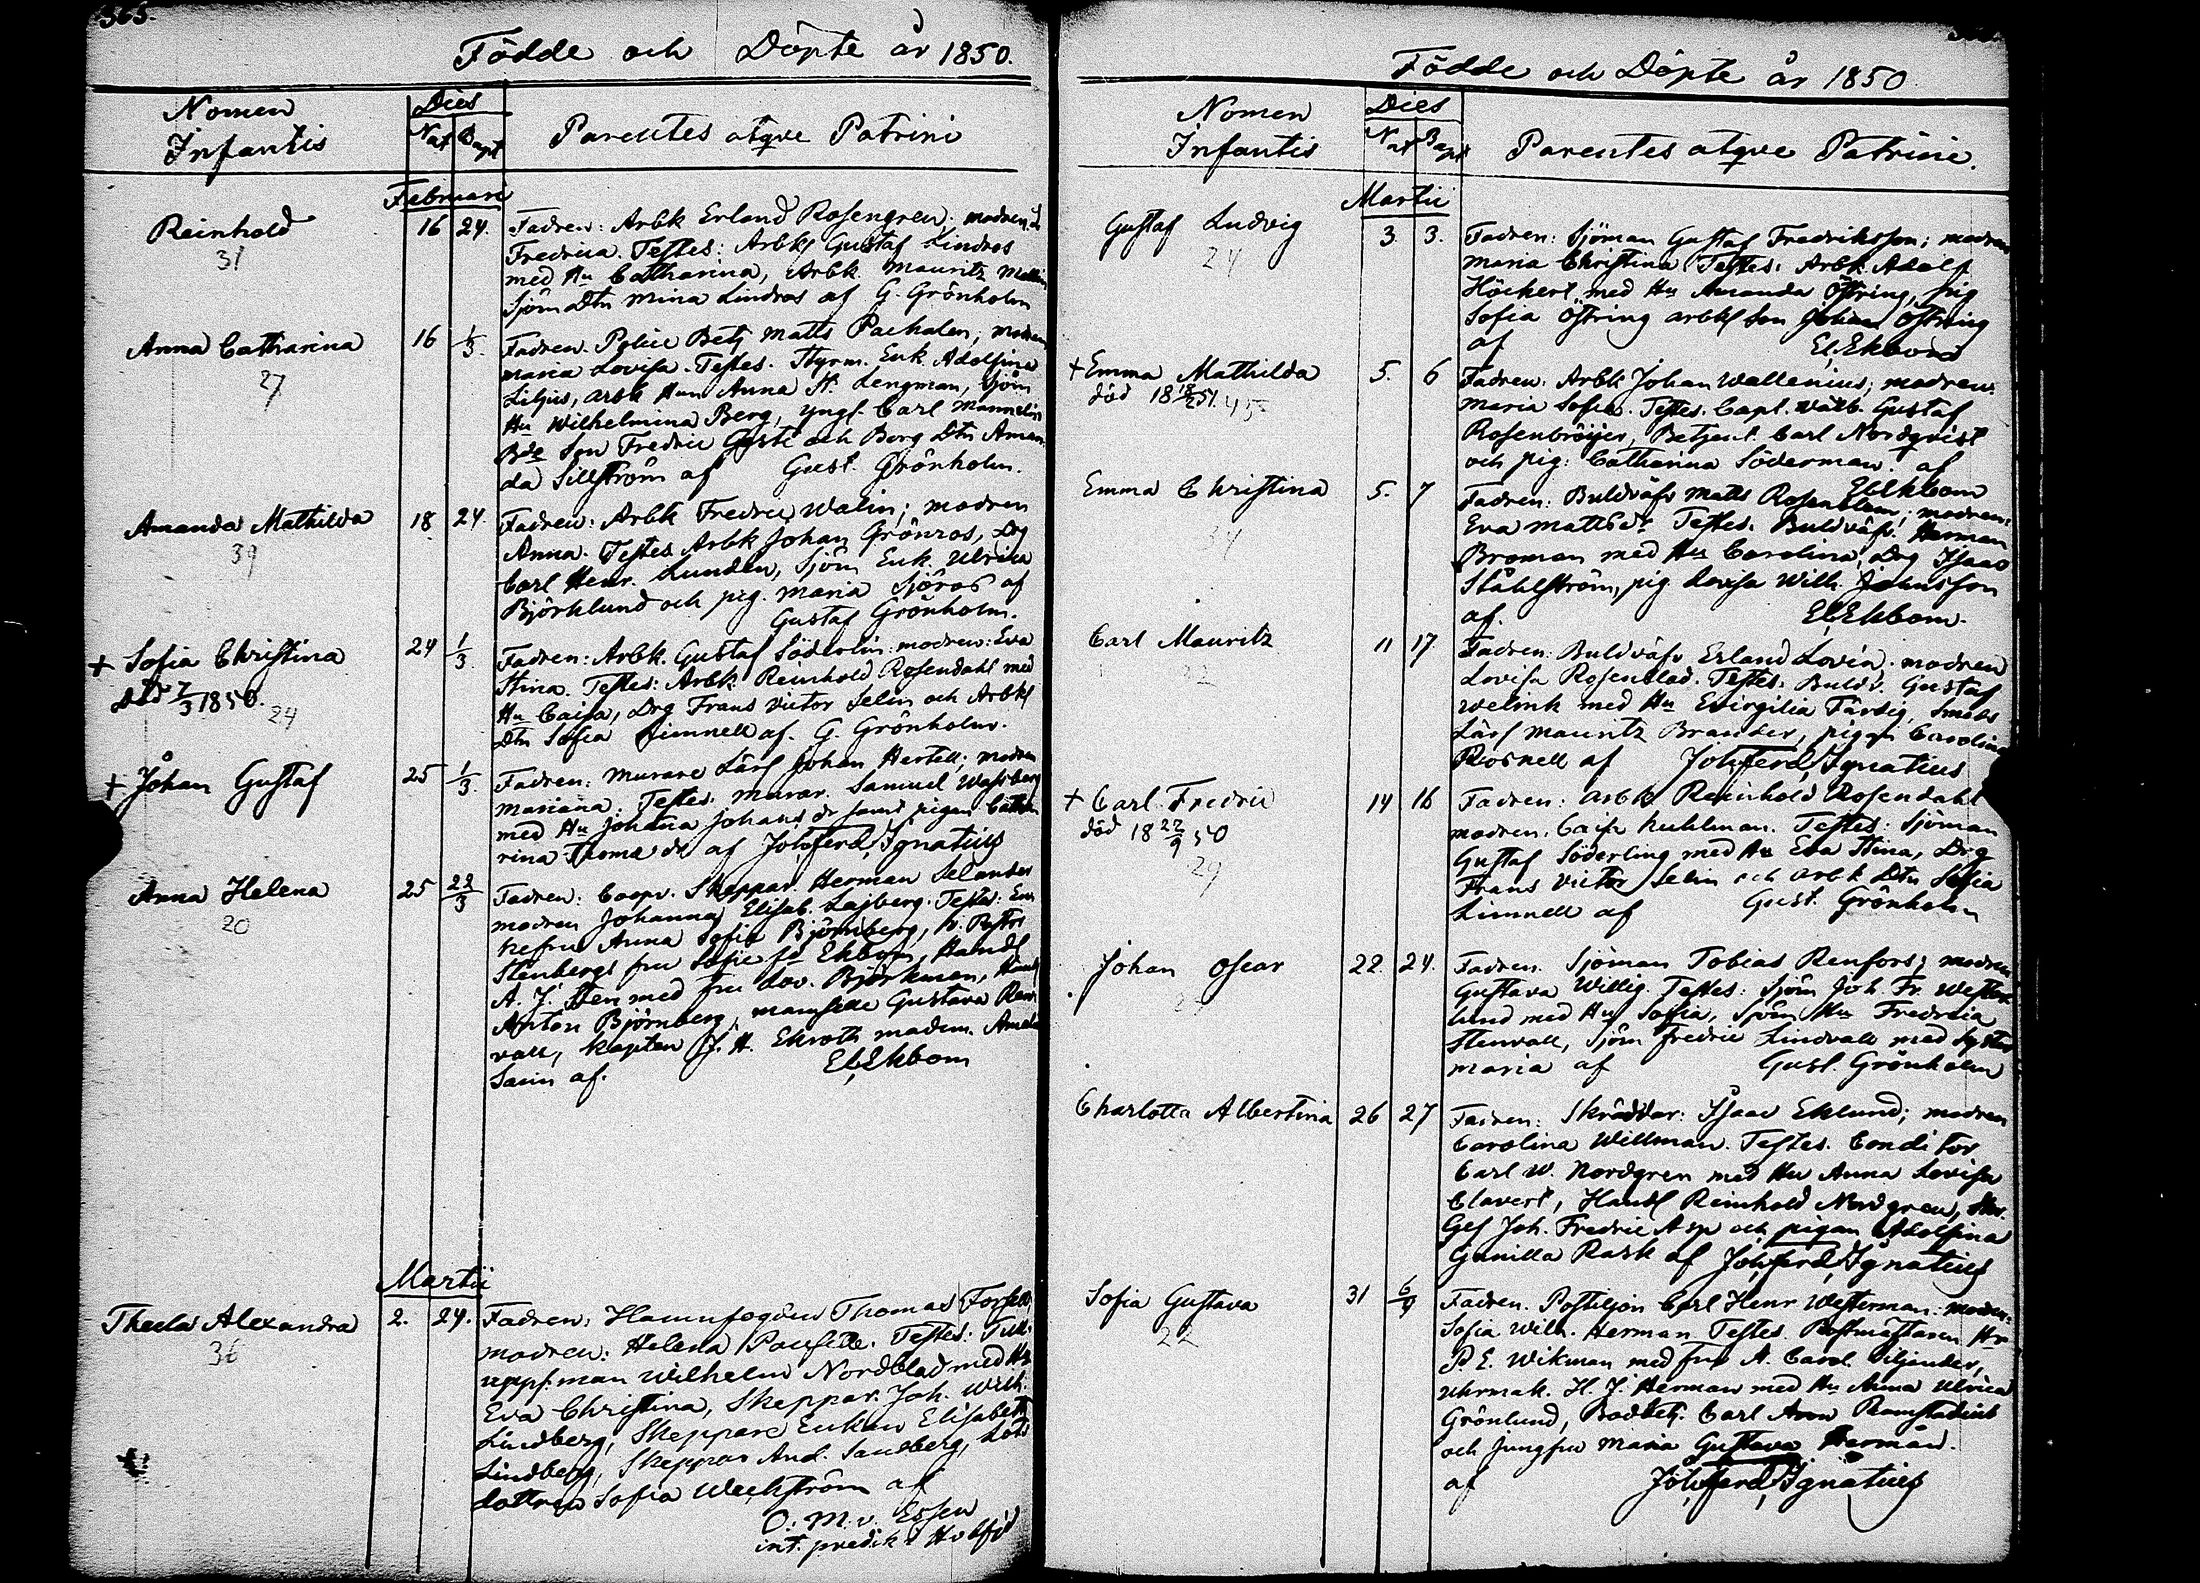 365.
Födde och Döpte år 1850.
Nomen Infantis
Dies
Nat Bapt
Parentes atqve Patrini
Februarii
Reinhold
31
16 24.
Fadren: Arbk Erland Rosengren. modren
Fredrica. Testes: Arbk Gustaf Lindros
med Hu Catharina, Arbk Mauritz
Sjöm Dtn Mina Lindros af G. Grönholm
Anna Catharina
27
16 1/3.
Fadren. Police Betj Matts Pachalen; modren
Maria Lovisa. Testes. Styrm. Enk Adolfina
Liljus, arbk Hun Anna St. Lengman, Sjöm
Hu Wilhelmina Berg, yngl. Carl Mannelin
Bde Son Fredric Geste och Borg Dtn Aman
da Sillström af Gust. Grönholm.
Amanda Mathilda
39
18 24.
Fadren: Arbk Fredric Walin; modren
Anna. Testes Arbk Johan Grönros, Drg
Carl Henr. Lunden, Sjöm Enk. Ulrica
Björklund och pig. Maria Sjöros af
Gustaf Grönholm.
+ Sofia Christina
död 7/3 1850.
24
24 1/3
Fadren: Arbk. Gustaf Söderlin: modren: Eva
Stina. Testes: Arbk Reinhold Rosendahl med
Hu Caisa, Drg Frans Victor Selin och Arbks
Dtn Sofia Limnell af. G. Grönholm.
+ Johan Gustaf
25 1/3.
Fadren: Murare Lärl Johan Hertell; modren
Mariana. Testes. Murar. Samuel Wassberg
med Hu Johana Johans dr samt pigan Catha
rina Thoma dr af Joh. Ferd. Ignatius
Anna Helena
20
25 22/3
Fadren: Coopv. Skeppar. Herman Selander
modren Johanna Elisab. Lajberg. Testes: En
kefru Anna Sofia Björnberg, h. Pastor
Stenbergs fru Sofie fd Ekbom, Handl
A. J. Sten med fru Lov. Björkman, Handl
Anton Björnberg, mamselle Gustava Ren
vall, kapten J. H. Ekroth madem. Amalia
Sarin af. El. Ekbom
Martii
Thecla Alexandra
36
2. 24.
Fadren: Hamnfogden Thomas Forsell
modren: Helena Paufelle. Testes. Tull
uppsman Wilhelm Nordblad med Hu
Eva Christina, Skeppar. Joh. Wilh.
Lindberg, Skeppare Enkan Elisabeth
Lindberg, Skeppar And. Sandberg, Lots
dottren Sofia Weckström af
O. M. v. Essen
int. predik i
Födde och Döpte år 1850.
Nomen Infantis
Dies
Nat Bapt
Parentes atqve Patrini.
Martii
Gustaf Ludvig
24
3. 3.
Fadren: Sjöman Gustaf Fredriksson; modren
Maria Christina Testes: Arbk Adolf
Höckert med Hu Amanda Östring, pig
Sofia Östring arbks son Johan Östring
af El. Ekbom
+ Emma Mathilda
död 18 18/2 51. 45
5. 6
Fadren: Arbk Johan Wallenius; modren:
Maria Sofia. Testes. Capt. Wälb. Gustaf
Rosenbröijer, Betjent Carl Nordqvist
och pig: Catharina Söderman. af
El. Ekbom
Emma Christina
34
5. 7
Fadren: Buldväfv Matts Rosenblom; modren:
Eva Mattsdr Testes. Buldväfv. Herman
Broman med Hu Carolina, Drg Isaac
Ståhlström, pig. Lovisa Wilh. Johansson
af. El. Ekbom.
Carl Mauritz
22
11 17.
Fadren: Buldväfv Erland Lovén. modren
Lovisa Rosenblad. Testes. Buldv. Gustaf
Welink med Hu Evirgilia Färdig, Smeds
Lärl Mauritz Brander, pigan Carolina
Rosnell af Joh. Ferd. Ignatius
+ Carl Fredric
död 18 22/9 50
29
14 16
Fadren: Arbk Reinhold Rosendahl
modren: Caisa Kuhlman. Testes: Sjöman
Gustaf Söderling med Hu Eva Stina, Drg
Frans Victor Selin och Arbk Dtn Sofia
Limnell af Gust. Grönholm
Johan Oscar
22. 24.
Fadren. Sjöman Tobias Renfors; modren
Gustava Willig. Testes: Sjöm Joh. Fr. Wester
lund med Hu Sofia, Sjöm Hu Fredrica
Stenvall, Sjöm Fredric Lindvall med Syster
Maria af Gust. Grönholm
Charlotta Albertina
26 27
Fadren: Skräddar: Isaac Eklund; modren
Carolina Willman. Testes. Conditor
Carl W. Nordgren med Hu Anna Lovisa
Clavert, Handl Reinhold Nordgren,
Gesl Joh. Fredric Asp och pigan Adolfina
Gunilla Rask af Joh. Ferd. Ignatius
Sofia Gustava
22
31 6/4
Fadren. Postiljon Carl Henr Westerman. modren:
Sofia Wilh. Herman Testes Postmästaren Hr
P. E. Wikman med fru A. Carol. Siljander,
Uhrmak. H. J. Herman med Hu Anna Ulrica
Grönlund, Bodbetj. Carl Aron Ramstadius
och Jungfru Maria Gustava Herman.
af Joh. Ferd. Ignatius